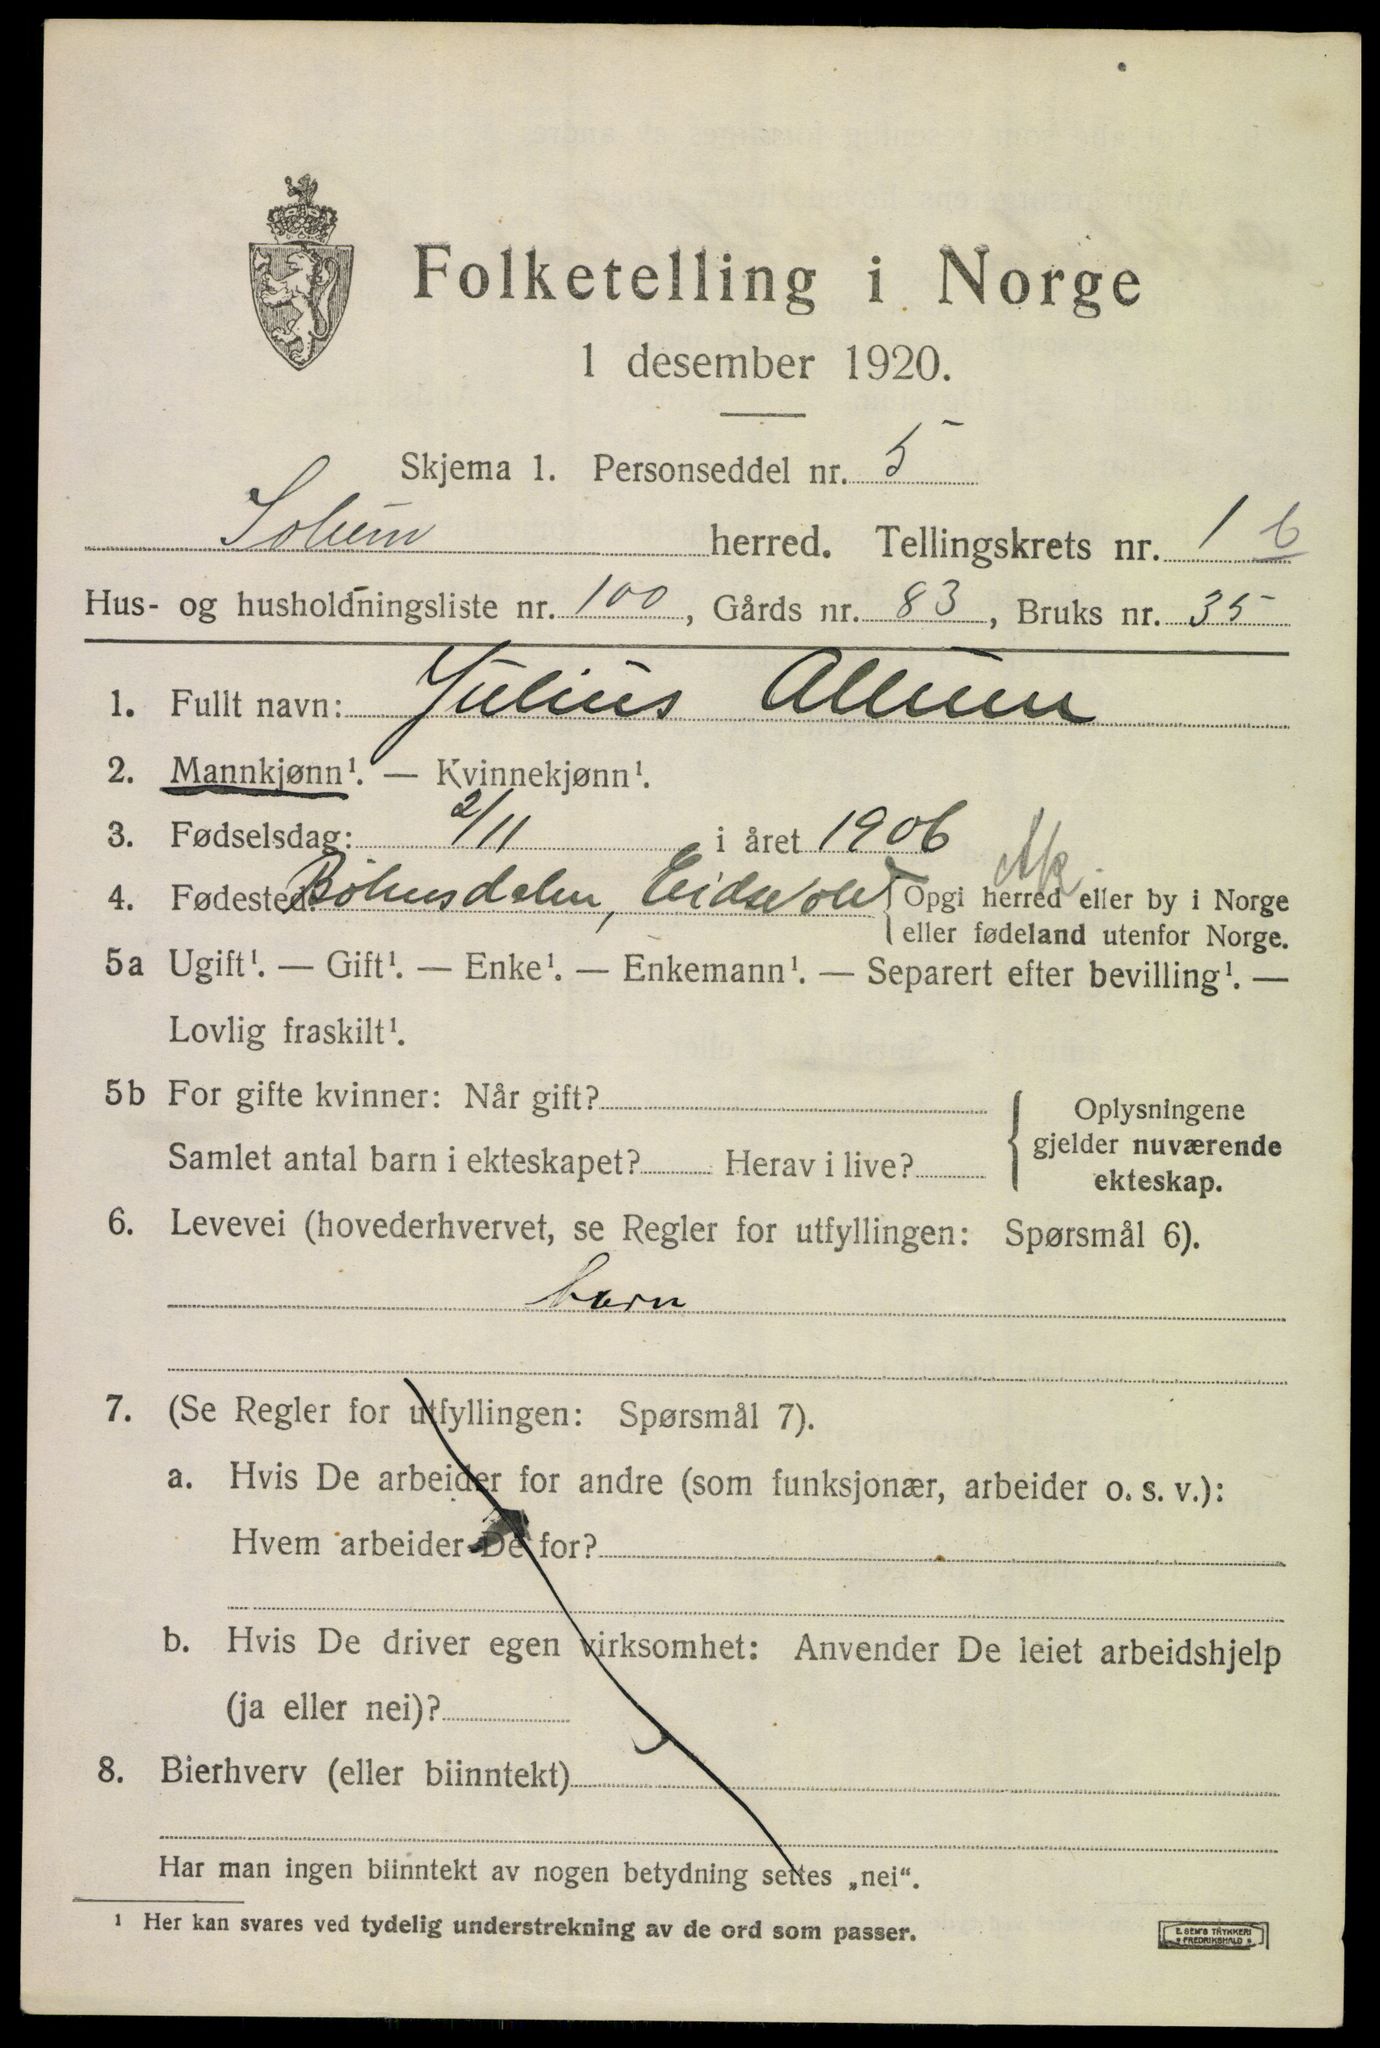 Folketelling i Norge
1 desember 1920.
Skjema 1. Personseddel nr. 5
herred. Tellingskrets nr. 1 b
Hus- og husholdningsliste nr. 100, Gårds nr. 83, Bruks nr. 35
1. Fullt navn: Julius Allum
2. Mannkjønn¹. — Kvinnekjønn¹.
3. Fødselsdag: 2/11 i året 1906
4. Fødested: Bøhnsdalen, Eidsvold { Opgi herred eller by i Norge
eller fødeland utenfor Norge.
Ak.
5a Ugift¹. — Gift¹. — Enke¹. — Enkemann¹. — Separert efter bevilling¹. —
Lovlig fraskilt¹.
5b For gifte kvinner: Når gift?
Samlet antal barn i ekteskapet? Herav i live?
{ Oplysningene
gjelder nuværende
ekteskap.
6. Levevei (hovederhvervet, se Regler for utfyllingen: Spørsmål 6).
barn
7. (Se Regler for utfyllingen: Spørsmål 7).
a. Hvis De arbeider for andre (som funksjonær, arbeider o. s. v.):
Hvem arbeider De for?
b. Hvis De driver egen virksomhet: Anvender De leiet arbeidshjelp
(ja eller nei)?
8. Bierhverv (eller biinntekt)
Har man ingen biinntekt av nogen betydning settes „nei“.
¹ Her kan svares ved tydelig understrekning av de ord som passer.
E. SEM'S TRYKKERI
FREDRIKSHALD